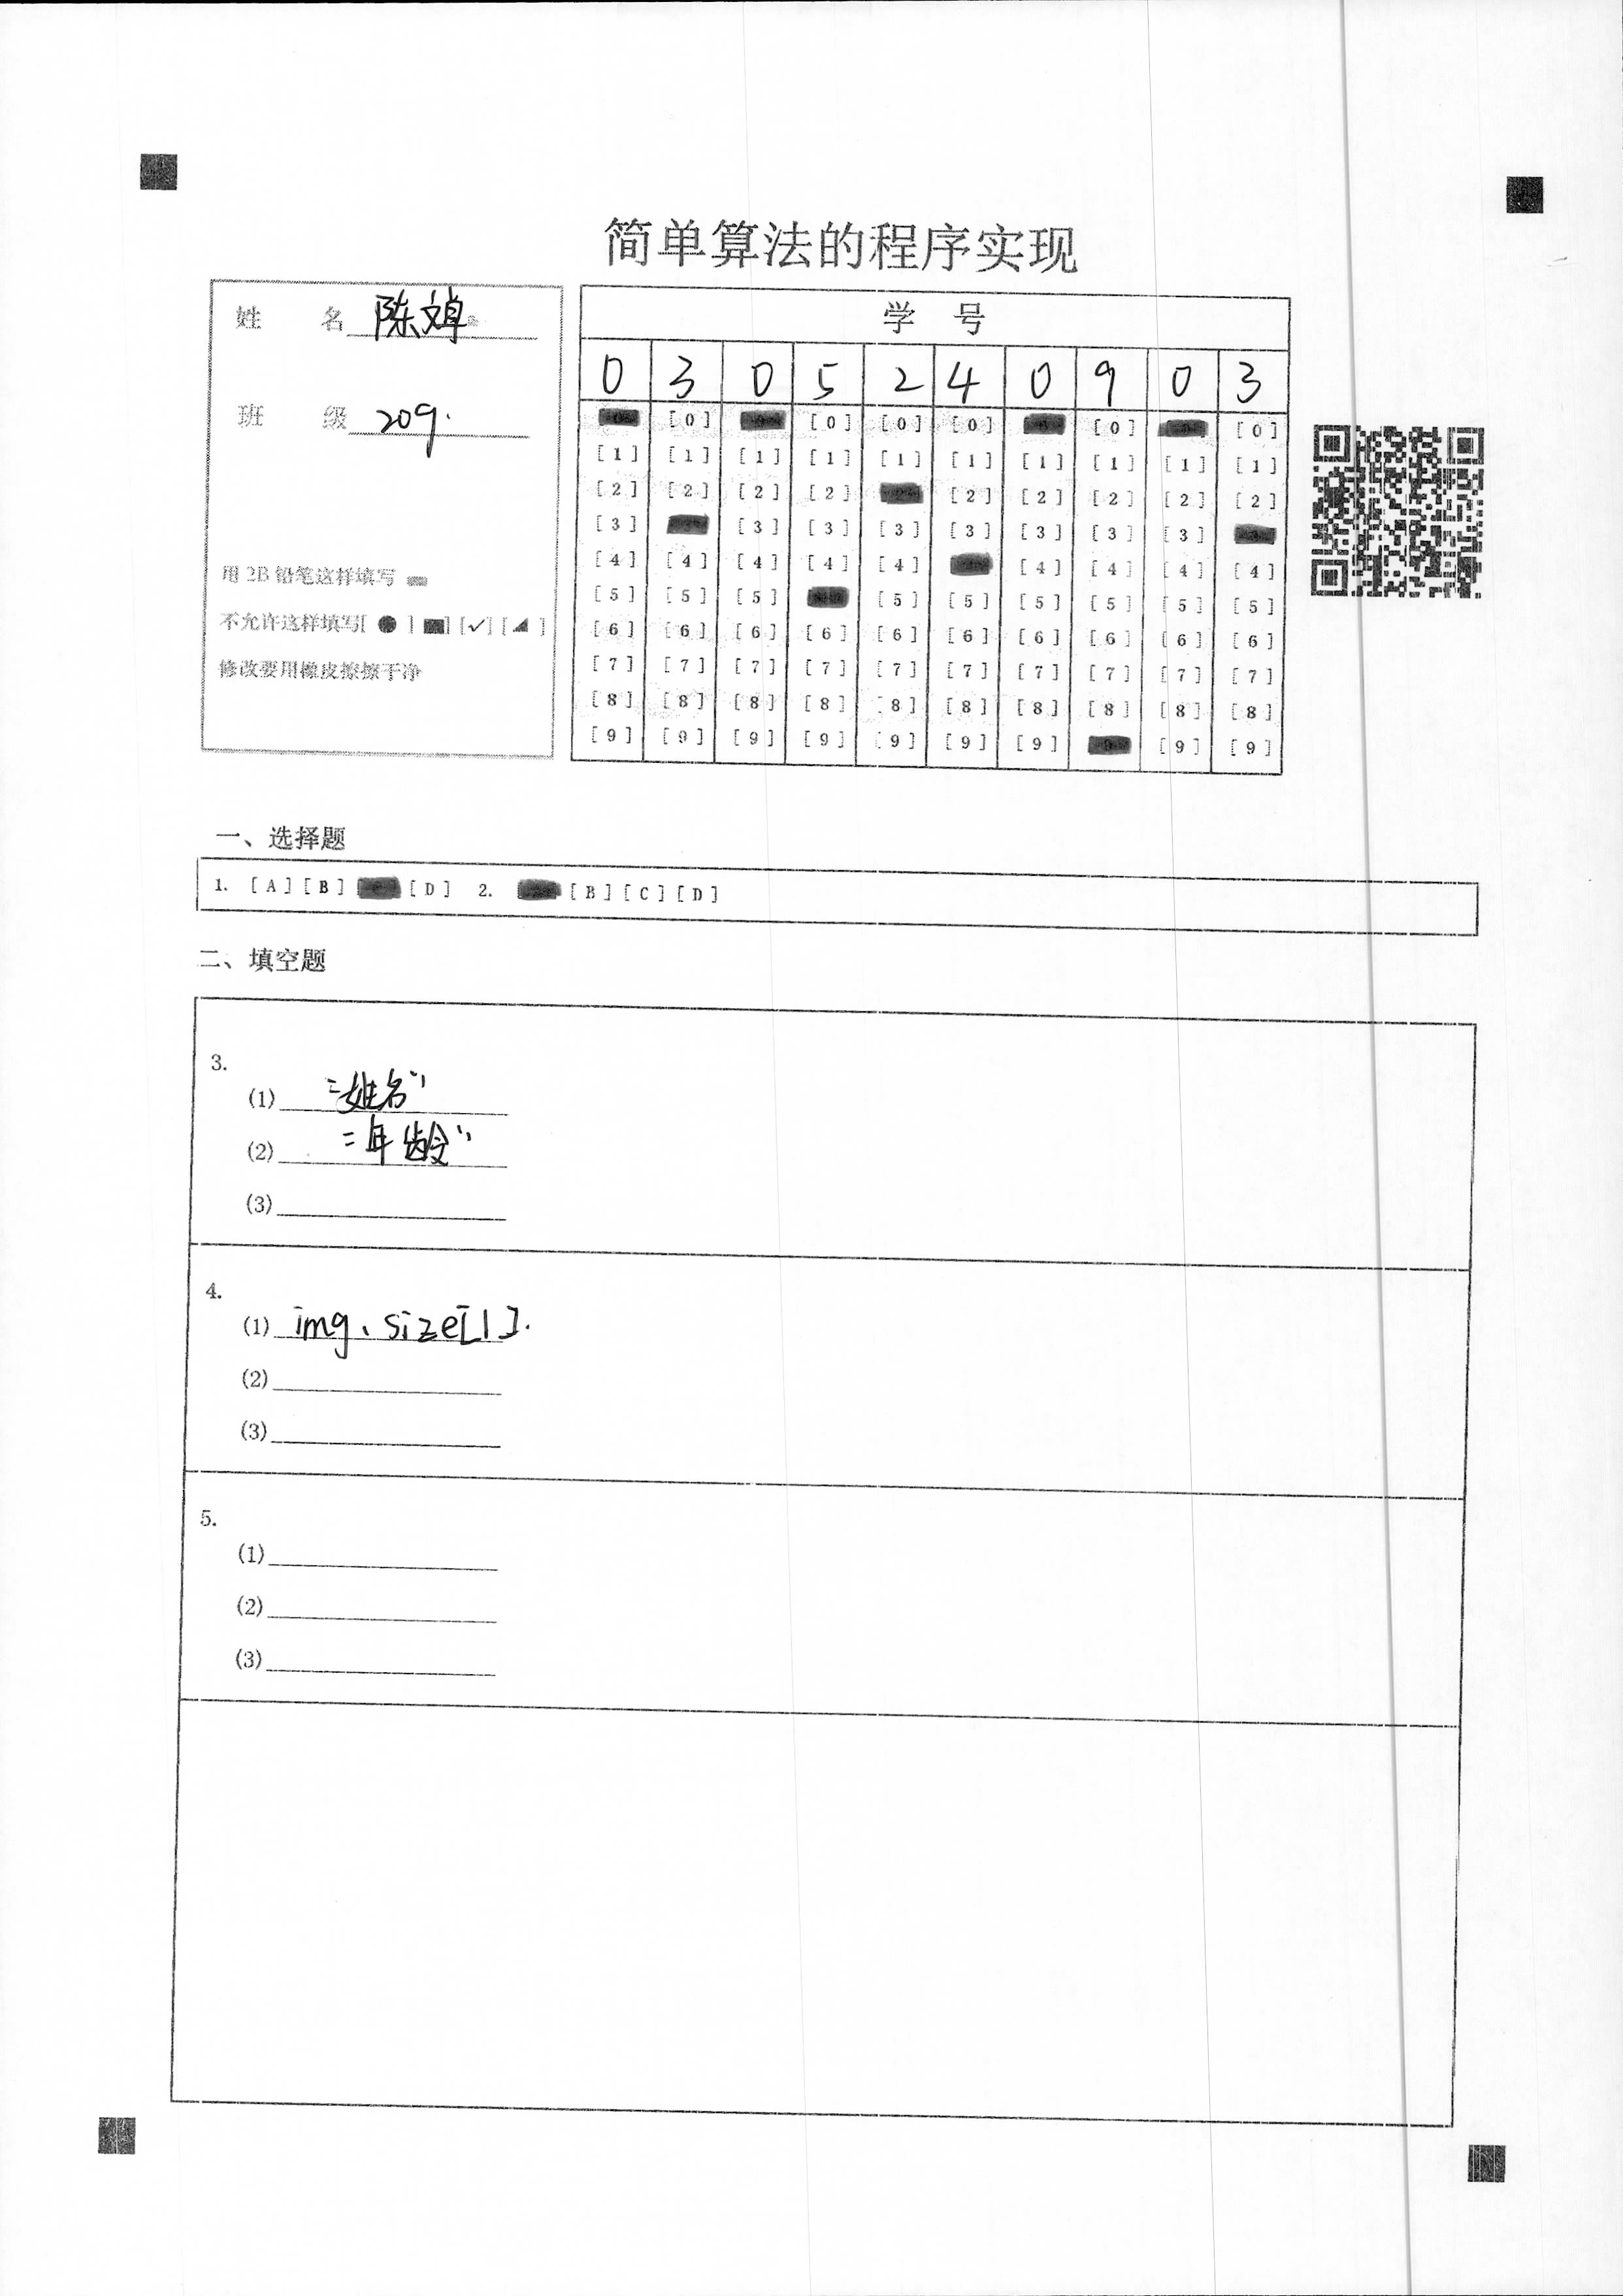 简单算法的程序实现
姓 名 陈焯
班 级 209.
用 2B 铅笔这样填写
不允许这样填写[ ● ] [■] [✓] [◢ ]
修改要用橡皮擦擦干净
学 号
0 3 0 5 2 4 0 9 0 3
[0] [0] [0] [0] [0] [0]
[1] [1] [1] [1] [1] [1] [1] [1] [1] [1]
[2] [2] [2] [2] [2] [2] [2] [2] [2]
[3] [3] [3] [3] [3] [3] [3] [3]
[4] [4] [4] [4] [4] [4] [4] [4] [4]
[5] [5] [5] [5] [5] [5] [5] [5] [5]
[6] [6] [6] [6] [6] [6] [6] [6] [6] [6]
[7] [7] [7] [7] [7] [7] [7] [7] [7] [7]
[8] [8] [8] [8] [8] [8] [8] [8] [8] [8]
[9] [9] [9] [9] [9] [9] [9] [9] [9]
一、选择题
1. [A] [B] [D] 2. [B] [C] [D]
二、填空题
3.
(1) "姓名"
(2) "年龄"
(3)
4.
(1) img、size[1].
(2)
(3)
5.
(1)
(2)
(3)